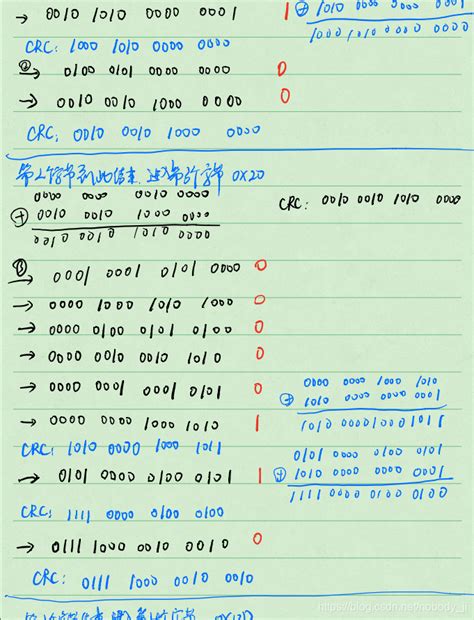 → 0010 1010 0000 0001 1 ⊕
1000 1010 0000 0000
CRC: 1000 1010 0000 0000
② → 0100 0101 0000 0000 0
→ 0010 0010 1000 0000 0
CRC: 0010 0010 1000 0000
0X20
0000 0000 0010 0000
⊕ 0010 0010 1000 0000
0010 0010 1010 0000
CRC: 0010 0010 1010 0000
③ → 0001 0001 0101 0000 0
→ 0000 1000 1010 1000 0
→ 0000 0100 0101 0100 0
→ 0000 0010 0010 1010 0
→ 0000 0001 0001 0101 0
→ 0000 0000 1000 1010 1
0000 0000 1000 1010
⊕ 1010 0000 0000 0001
1010 0000 1000 1011
CRC: 1010 0000 1000 1011
→ 0101 0000 0100 0101 1
0101 0000 0100 0101
⊕ 1010 0000 0000 0001
1111 0000 0100 0100
CRC: 1111 0000 0100 0100
→ 0111 1000 0010 0010 0
CRC: 0111 1000 0010 0010